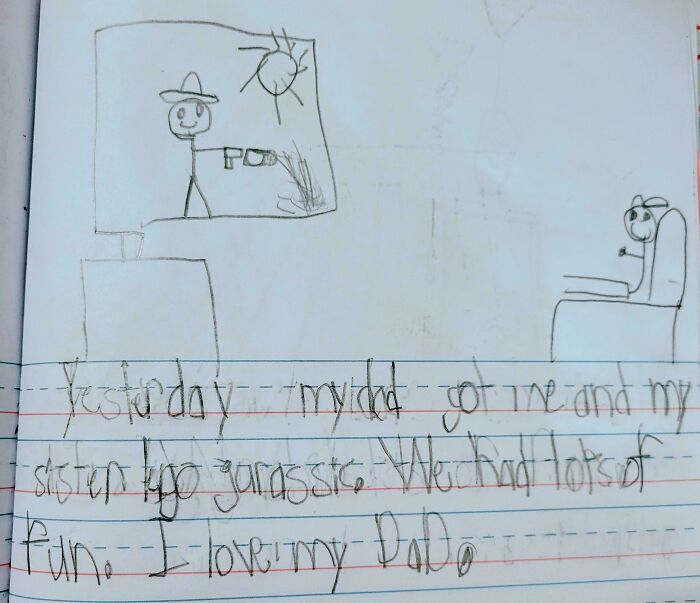 Yesterday my dad got me and my
sister lego jurassic. We had lots of
fun. I love my DaD.